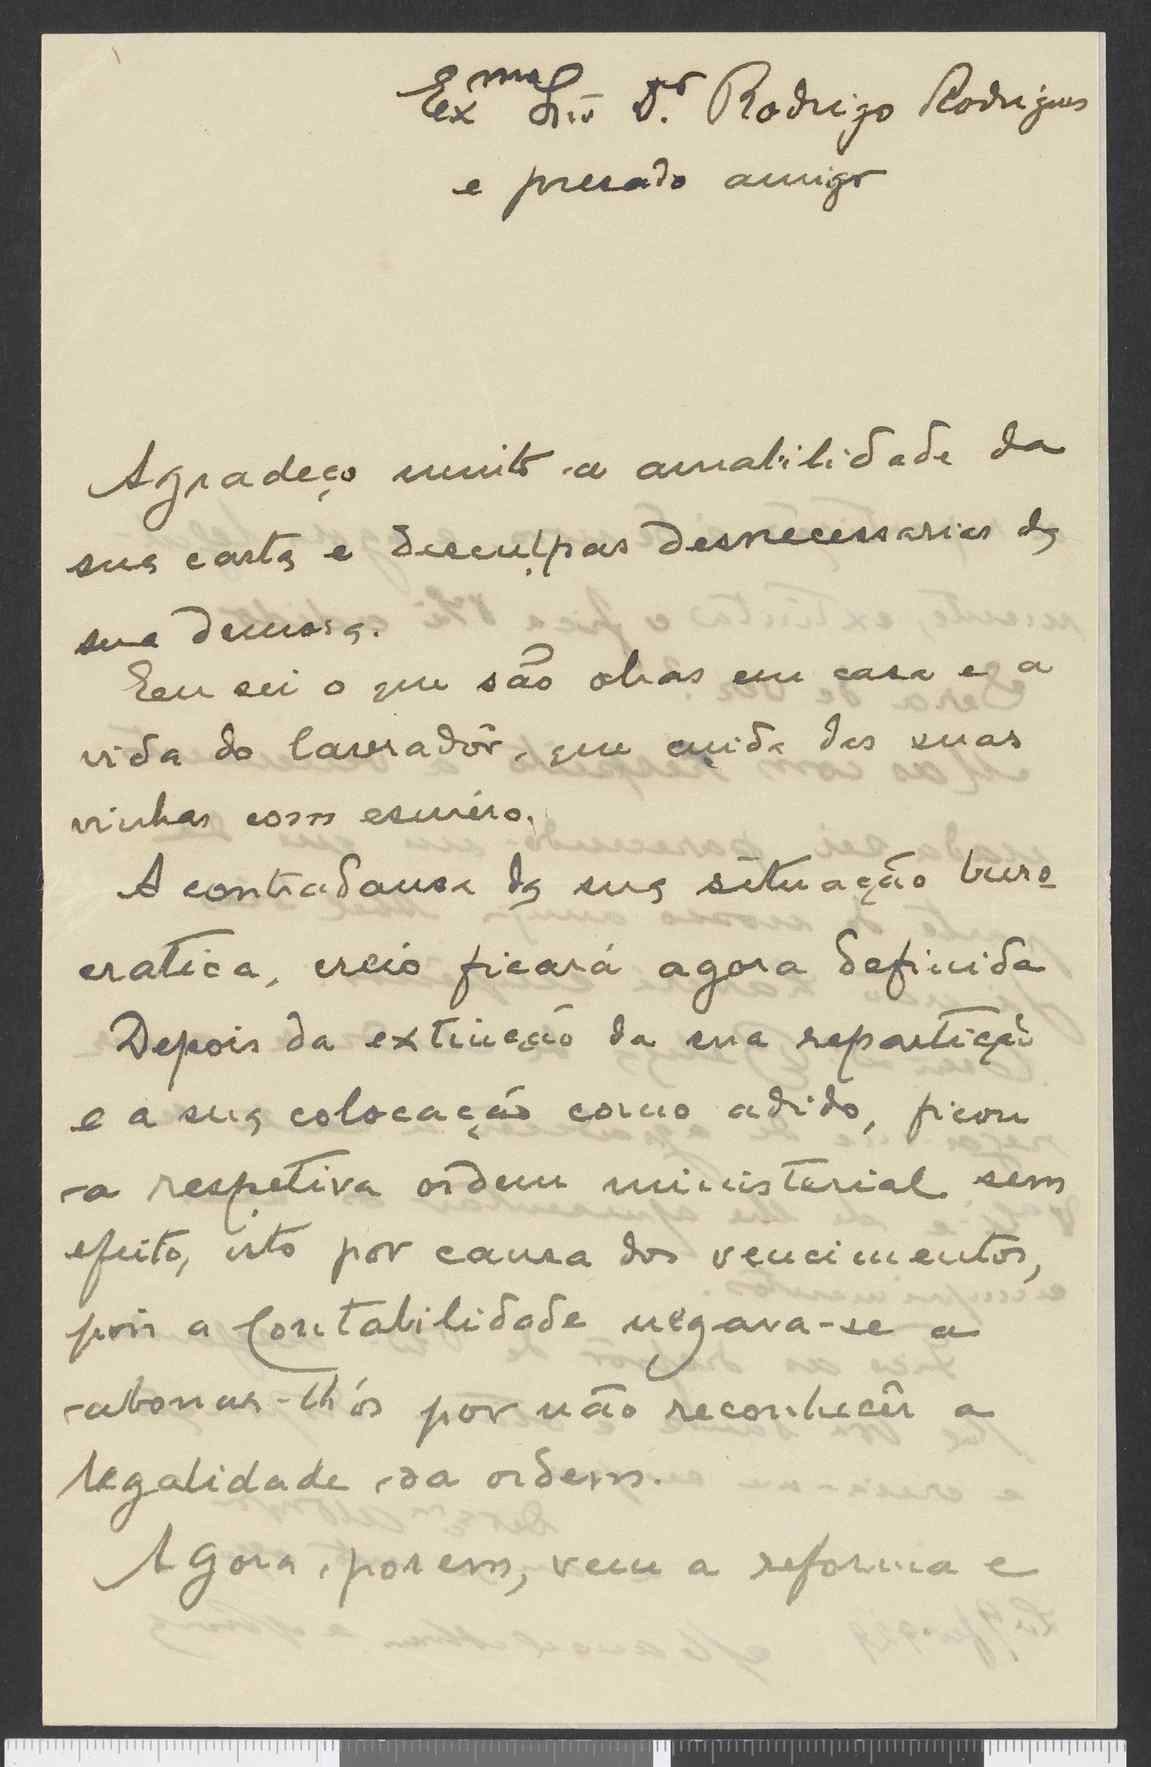 Ex.mo Snr. Dr. Rodrigo Rodrigues
e presado amigo
Agradeço muito a amabilidade da
sua carta e desculpas desnecessarias da
sua demora.
Eeu sei o que são obras em casa e a
vida do lavradôr, que cuida das suas
vinhas com esméro.
A contradansa da sua situação buro
cratica, creio ficará agora definida
Depois da extinção da sua repartição
e a sua colocação como adido, ficou
a respetiva ordem ministerial sem
efeito, isto por causa dos vencimentos,
pois a Contabilidade negava-se a
abonar-lh'os por não reconhecêr a
legalidade da ordem.
Agora, porem, vem a reforma e